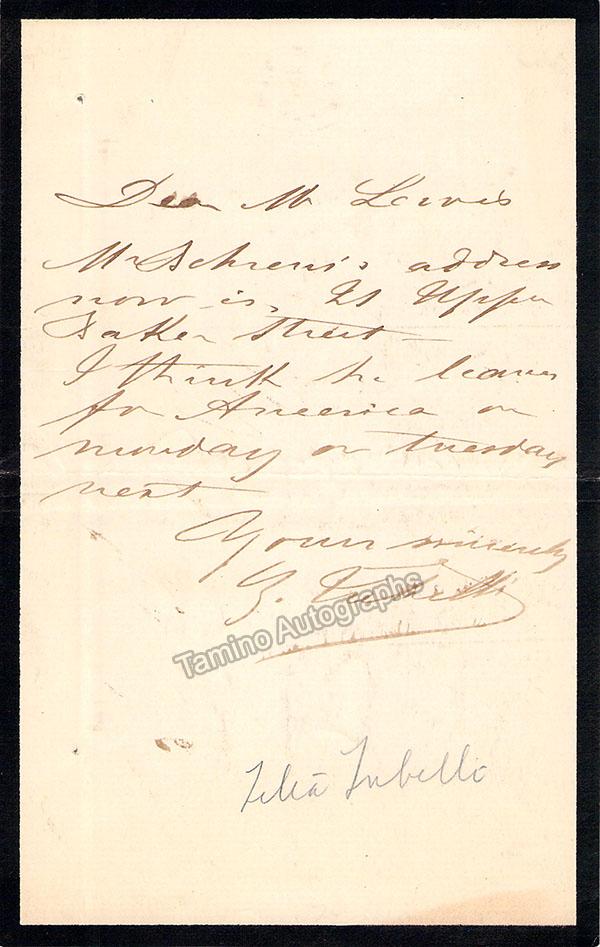 Dear Mr Lewis
Mr Behrens's address
now is, 21 Upper
Baker Street
I think he leaves
for America on
monday or tuesday
next
Yours sincerely
Z. Trebelli
Tamino Autographs
Zelia Trebelli